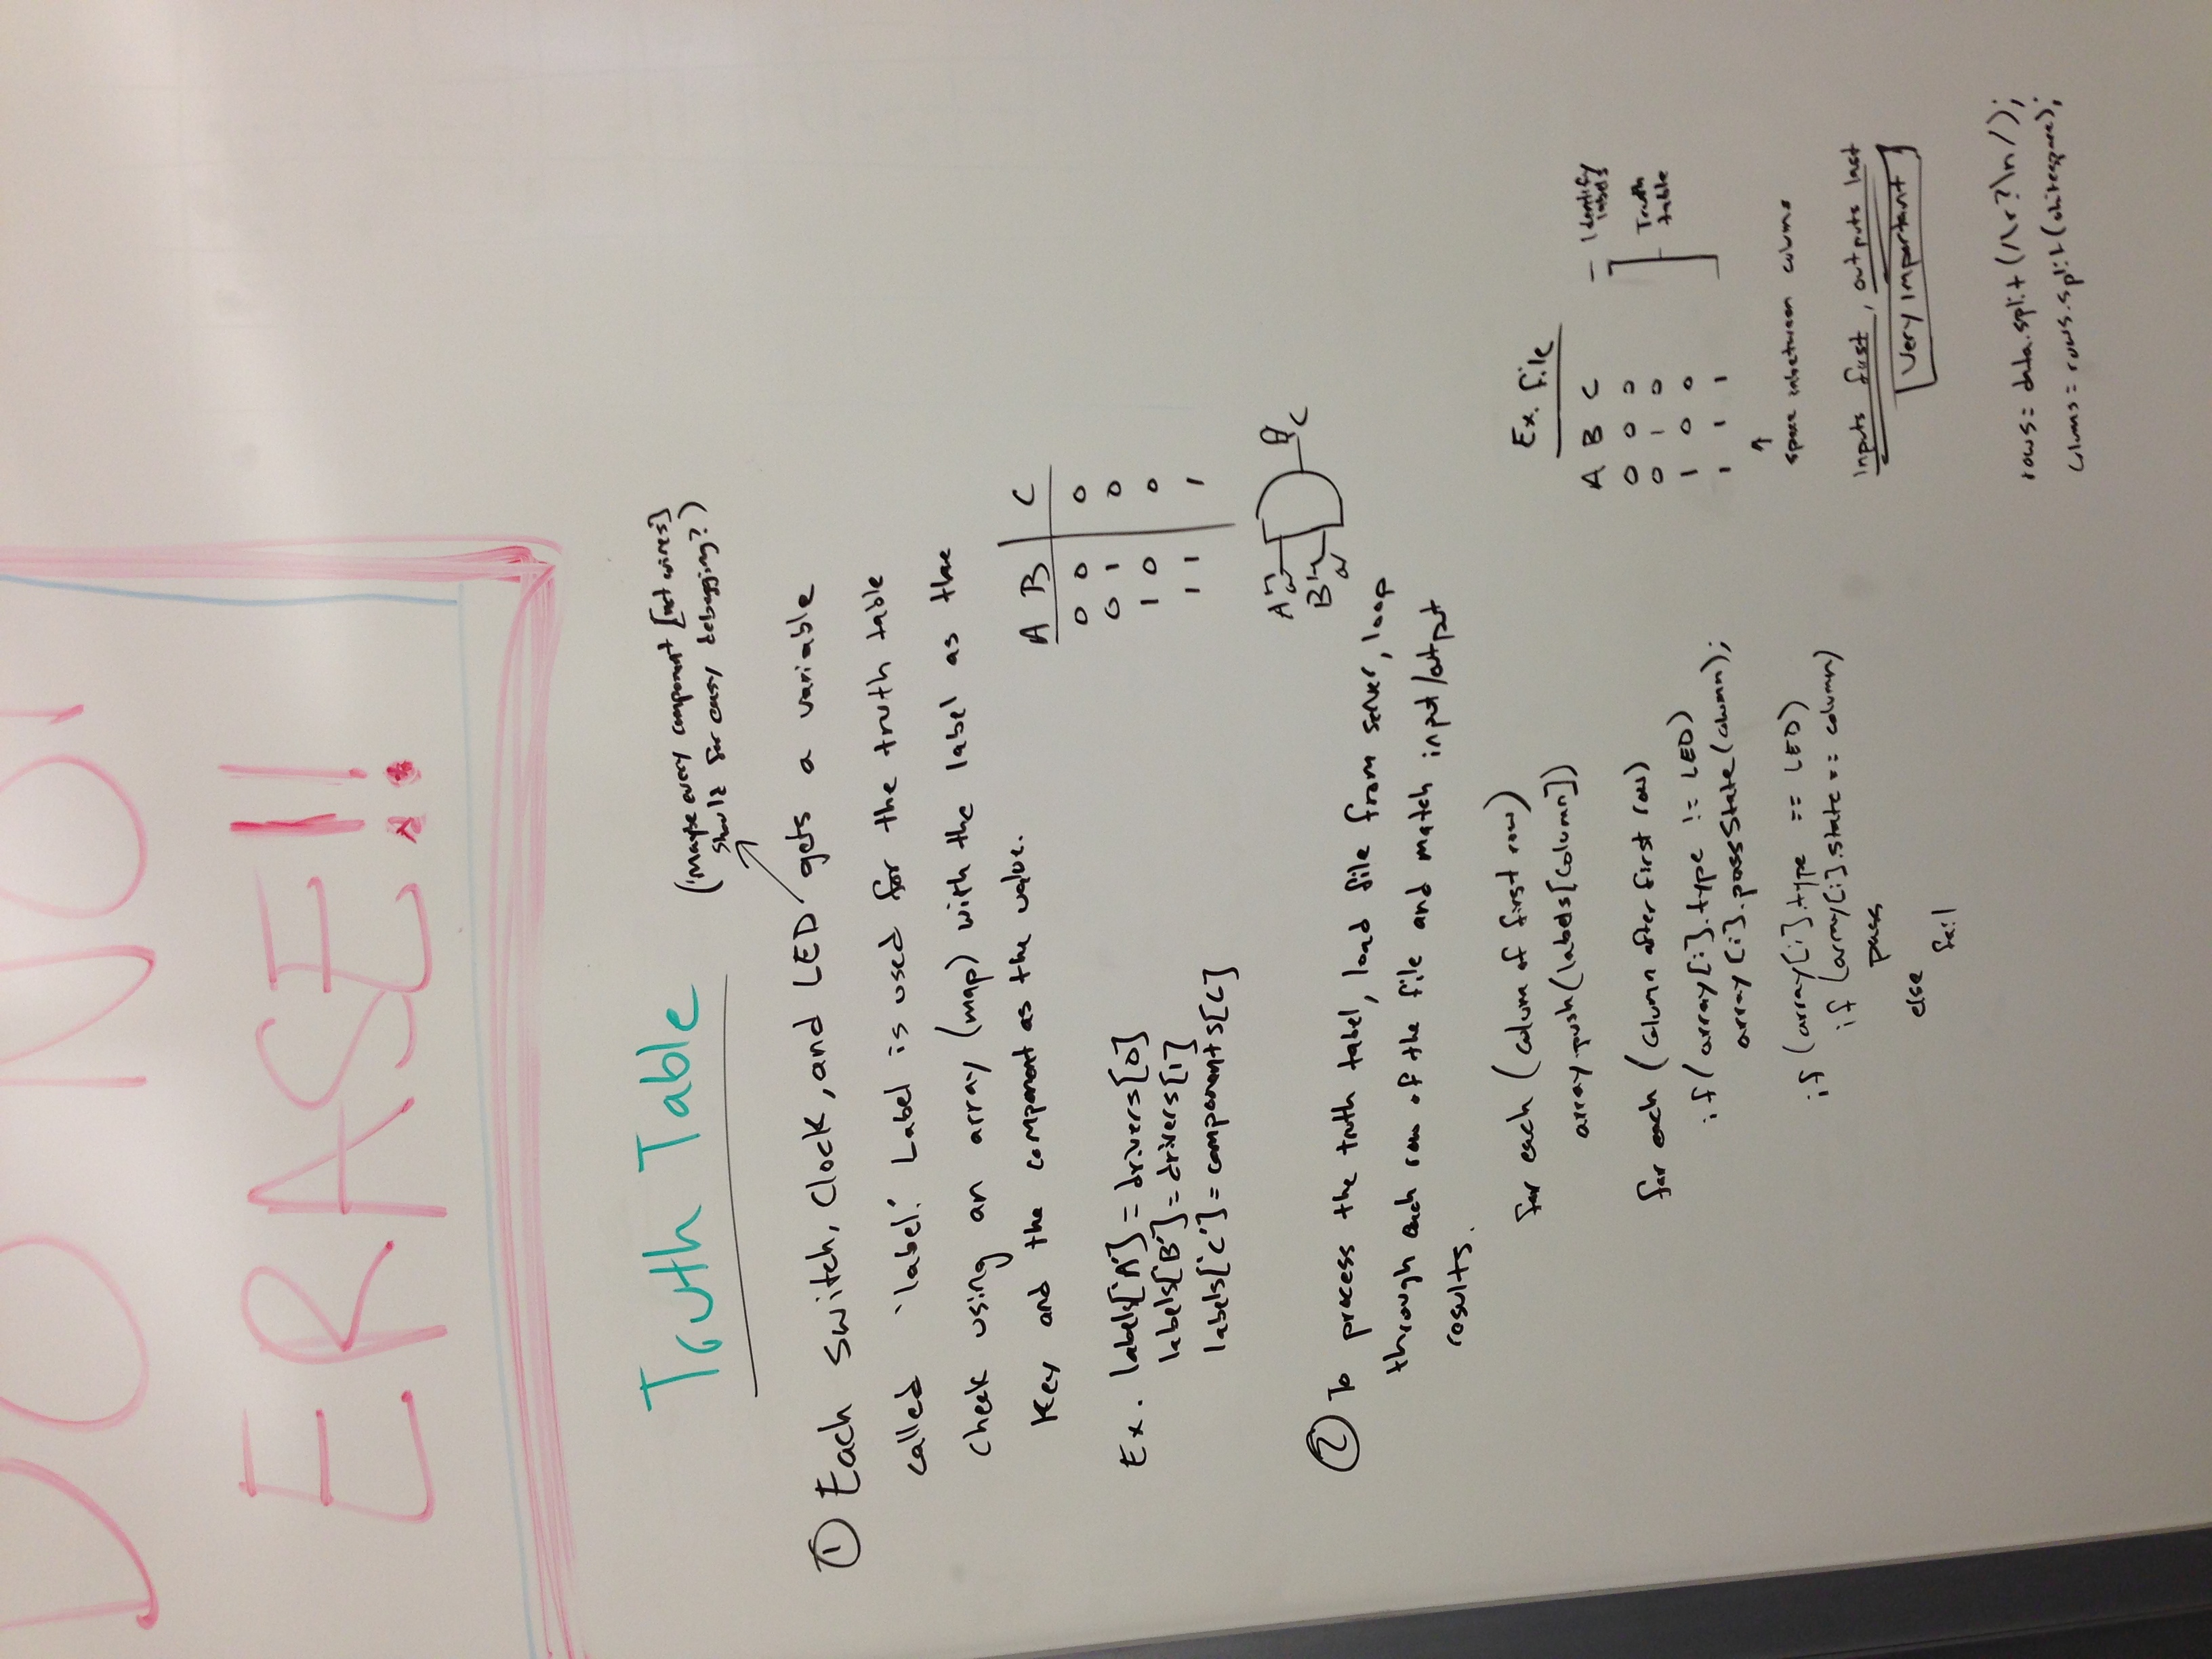 DO NOT
ERASE!!
Truth Table
(Maybe every component [not wires]
should for easy debugging?)
① Each switch, Clock, and LED gets a variable
called 'label.' Label is used for the truth table
check using an array (map) with the label as the
Key and the component as the value.
A B | C
0 0 | 0
0 1 | 0
1 0 | 0
1 1 | 1
Ex. labels['A'] = drivers[0]
labels['B'] = drivers[1]
labels['C'] = components[C]
A
B
C
② To process the truth tabel, load file from server, loop
through each row of the file and match input/output
results.
for each (column of first row)
array.push(labels[column])
for each (column after first row)
if (array[i].type != LED)
array[i].passState(column);
if (array[i].type == LED)
if (array[i].state == column)
pass
else
fail
Ex. file
A B C — Identify
labels
0 0 0
0 1 0
1 0 0
1 1 1
Truth
table
space inbetween colums
Inputs first, outputs last
Very important
rows = data.split(/\r?\n/);
colums = rows.split(whitespace);